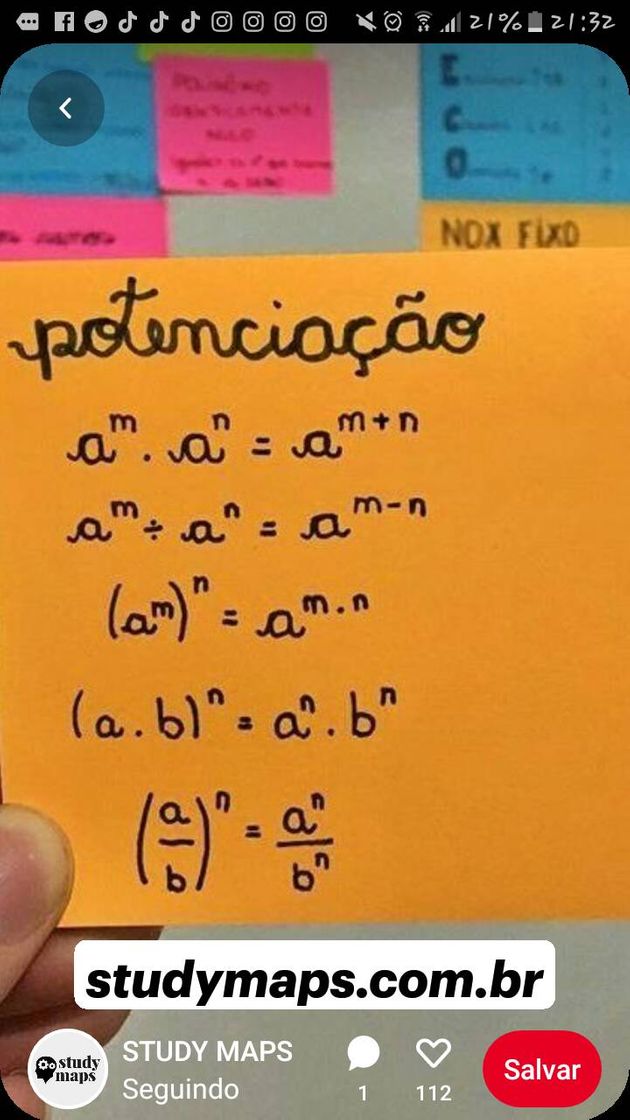 21% 21:32
E
C
O
NOX FIXO
potenciação
aᵐ . aⁿ = aᵐ⁺ⁿ
aᵐ ÷ aⁿ = aᵐ⁻ⁿ
(aᵐ)ⁿ = aᵐ·ⁿ
(a . b)ⁿ = aⁿ . bⁿ
(a/b)ⁿ = aⁿ/bⁿ
studymaps.com.br
study
maps
STUDY MAPS
Seguindo
1
112
Salvar